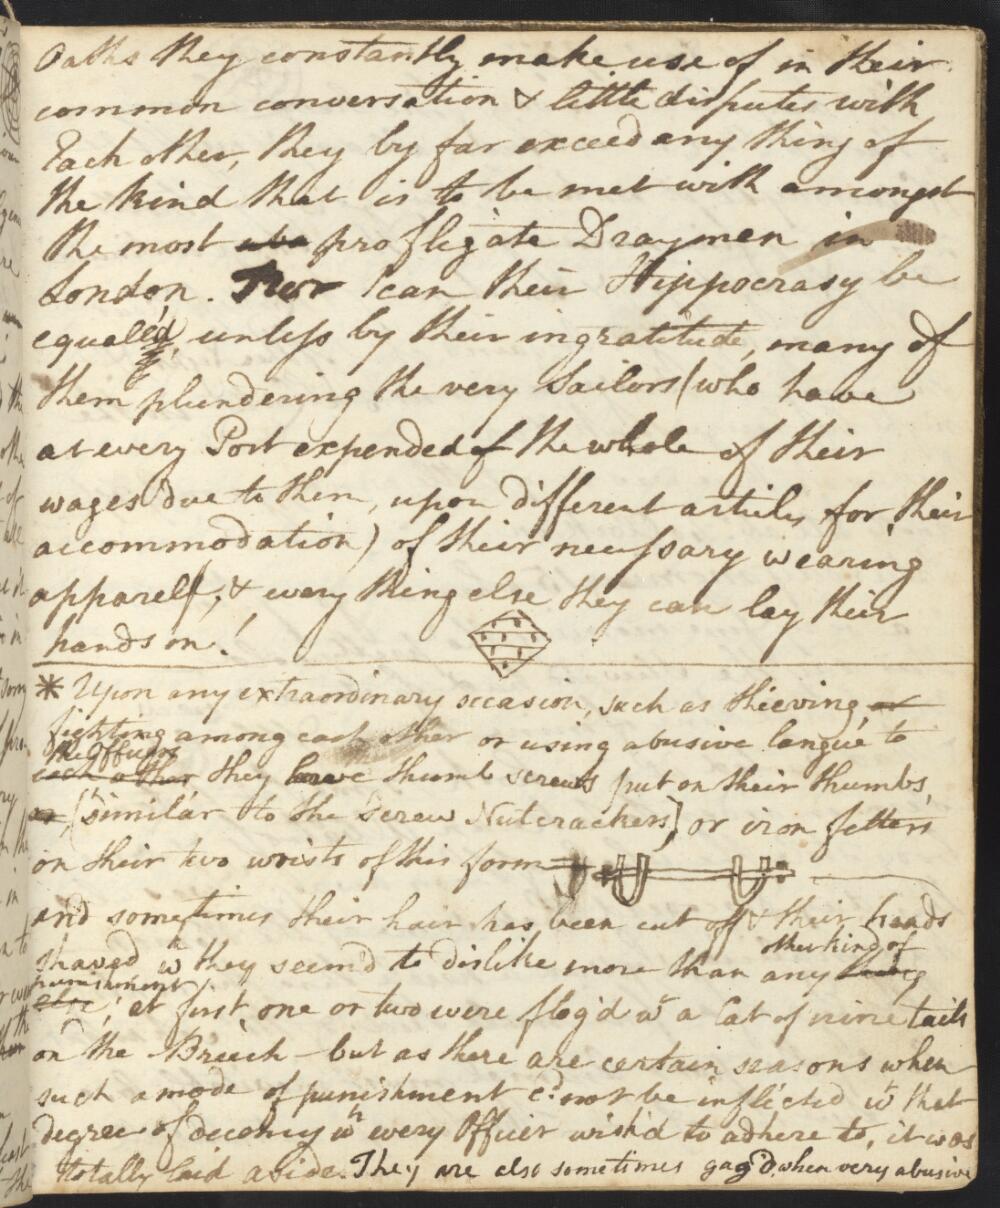 Oaths they constantly make use of in their
common conversation & little disputes with
Each other, they by far exceed any thing of
the kind that is to be met with amongst
the most profligate Draymen in
London. Nor can their Hippocrasy be
equalled, unless by their ingratitude, many of
them plundering the very Sailors (who have
at every Port expended the whole of their
wages due to them, upon different articles for their
accommodation) of their necessary wearing
apparell, & every thing else they can lay their
hands on!
* Upon any extraordinary occasion, such as thieving, or
fighting among each other or using abusive langue to
the Officers
each other they have thumb screws put on their thumbs,
(similar to the Screw Nutcrackers) or iron fetters
on their two wrists of this form
and sometimes their hair has been cut off & their heads
other kind of
shaved wh they seem'd to dislike more than any
punishment
else; at first one or two were flog'd wt a Cat of nine tails
on the Breech - but as there are certain seasons when
such a mode of punishment cd. not be inflicted wh that
degree of decency wh every Officer wish'd to adhere to, it was
totally laid aside. They are also sometimes gag'd when very abusive